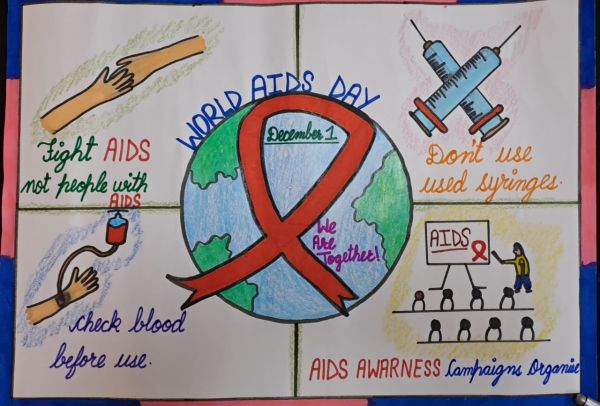 WORLD AIDS DAY
December 1
We
Are
Together!
Fight AIDS
not people with
AIDS
Don't use
used syringes.
check blood
before use.
AIDS
AIDS AWARNESS Campaigns Organise